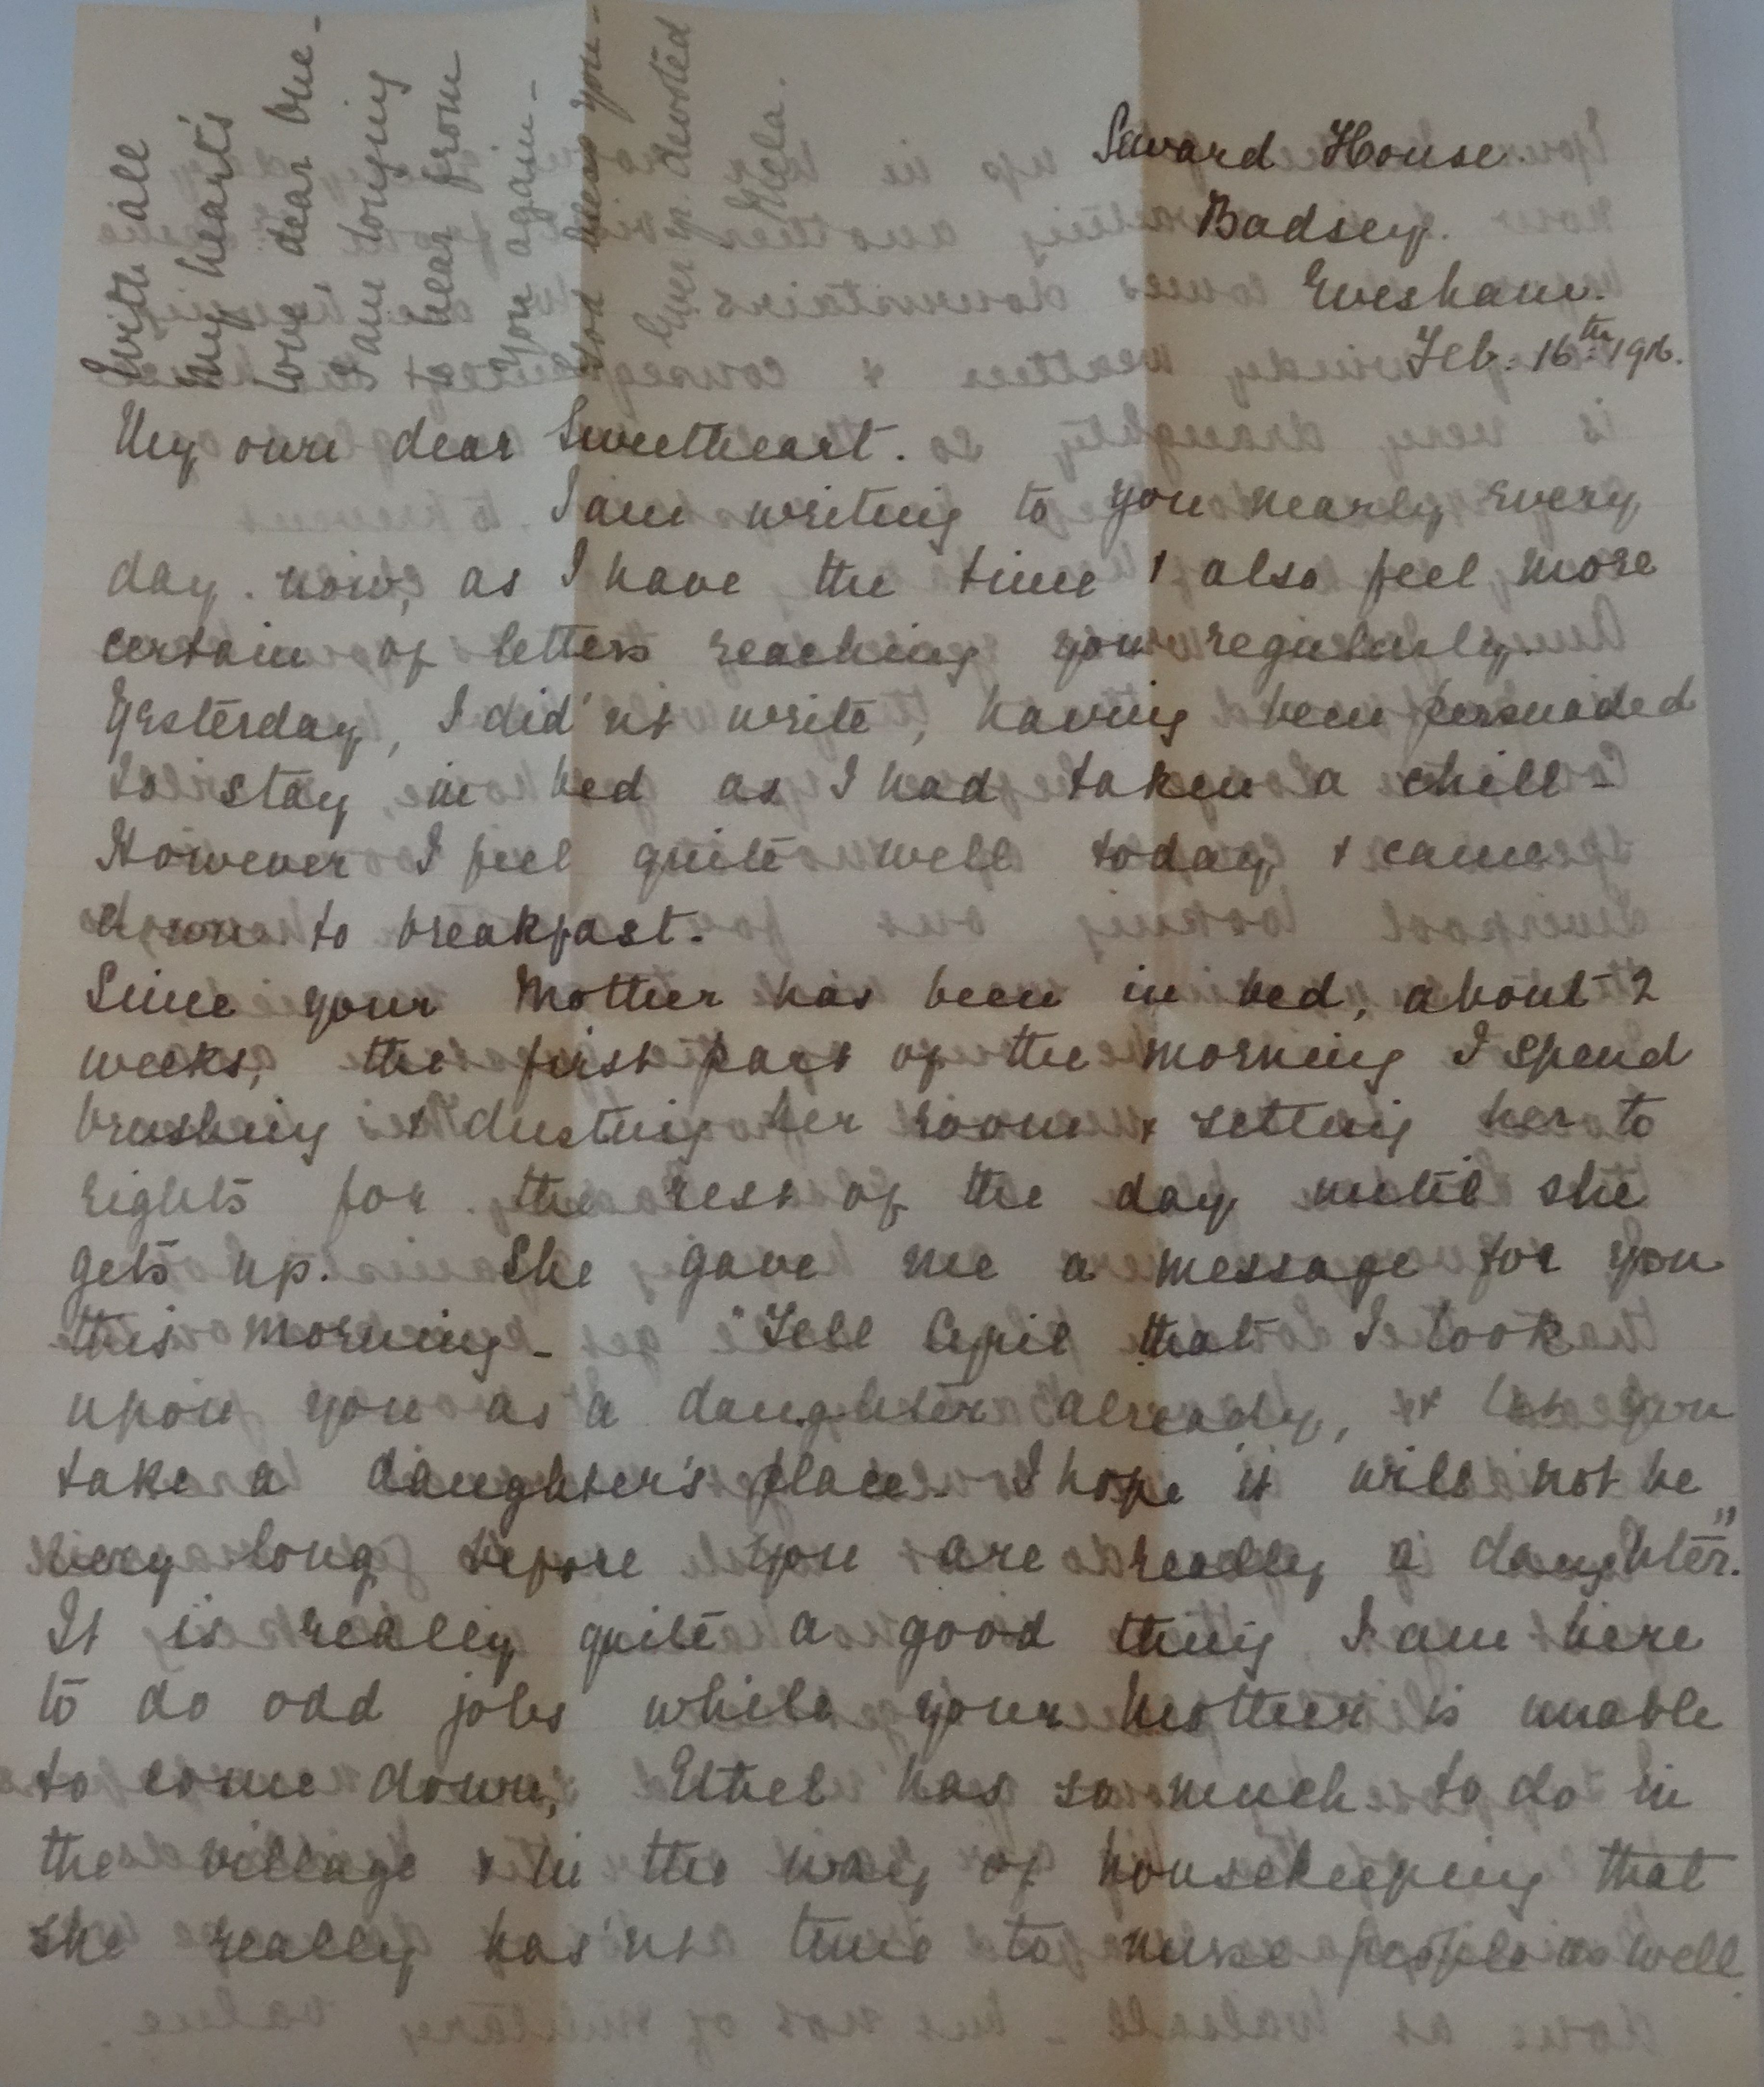 Seward House.
Badsey.
Evesham.
Feb. 16th 1916.
My own dear Sweetheart.
I am writing to you nearly every
day now, as I have the time & also feel more
certain of letters reaching you regularly.
Yesterday, I did'nt write, having been persuaded
to stay in bed as I had taken a chill -
However I feel quite well today & came
down to breakfast.
Since your Mother has been in bed, about 2
weeks, the first part of the morning I spend
brushing & dusting her room & setting her to
rights for the rest of the day until she
gets up. She gave me a message for you
this morning - "Tell Cyril that I look
upon you as a daughter already, & let you
take a daughter's place. I hope it will not be
very long before you are really a daughter."
It is really quite a good thing I am here
to do odd jobs while your Mother is unable
to come down, Ethel has so much to do in
the village & in the way of housekeeping that
she really has'nt time to nurse people as well.
With all
my heart's
love, dear one -
I am longing
to hear from
you again -
God bless you -
Ever yr. devoted
Mela.